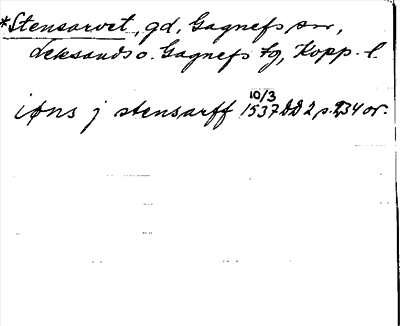 *Stensarvet, gd, Gagnefs sn,
Leksands o. Gagnefs tg, Kopp. l.
10/3
iøns j stensarff 1537 DD 2 s. 234 or.